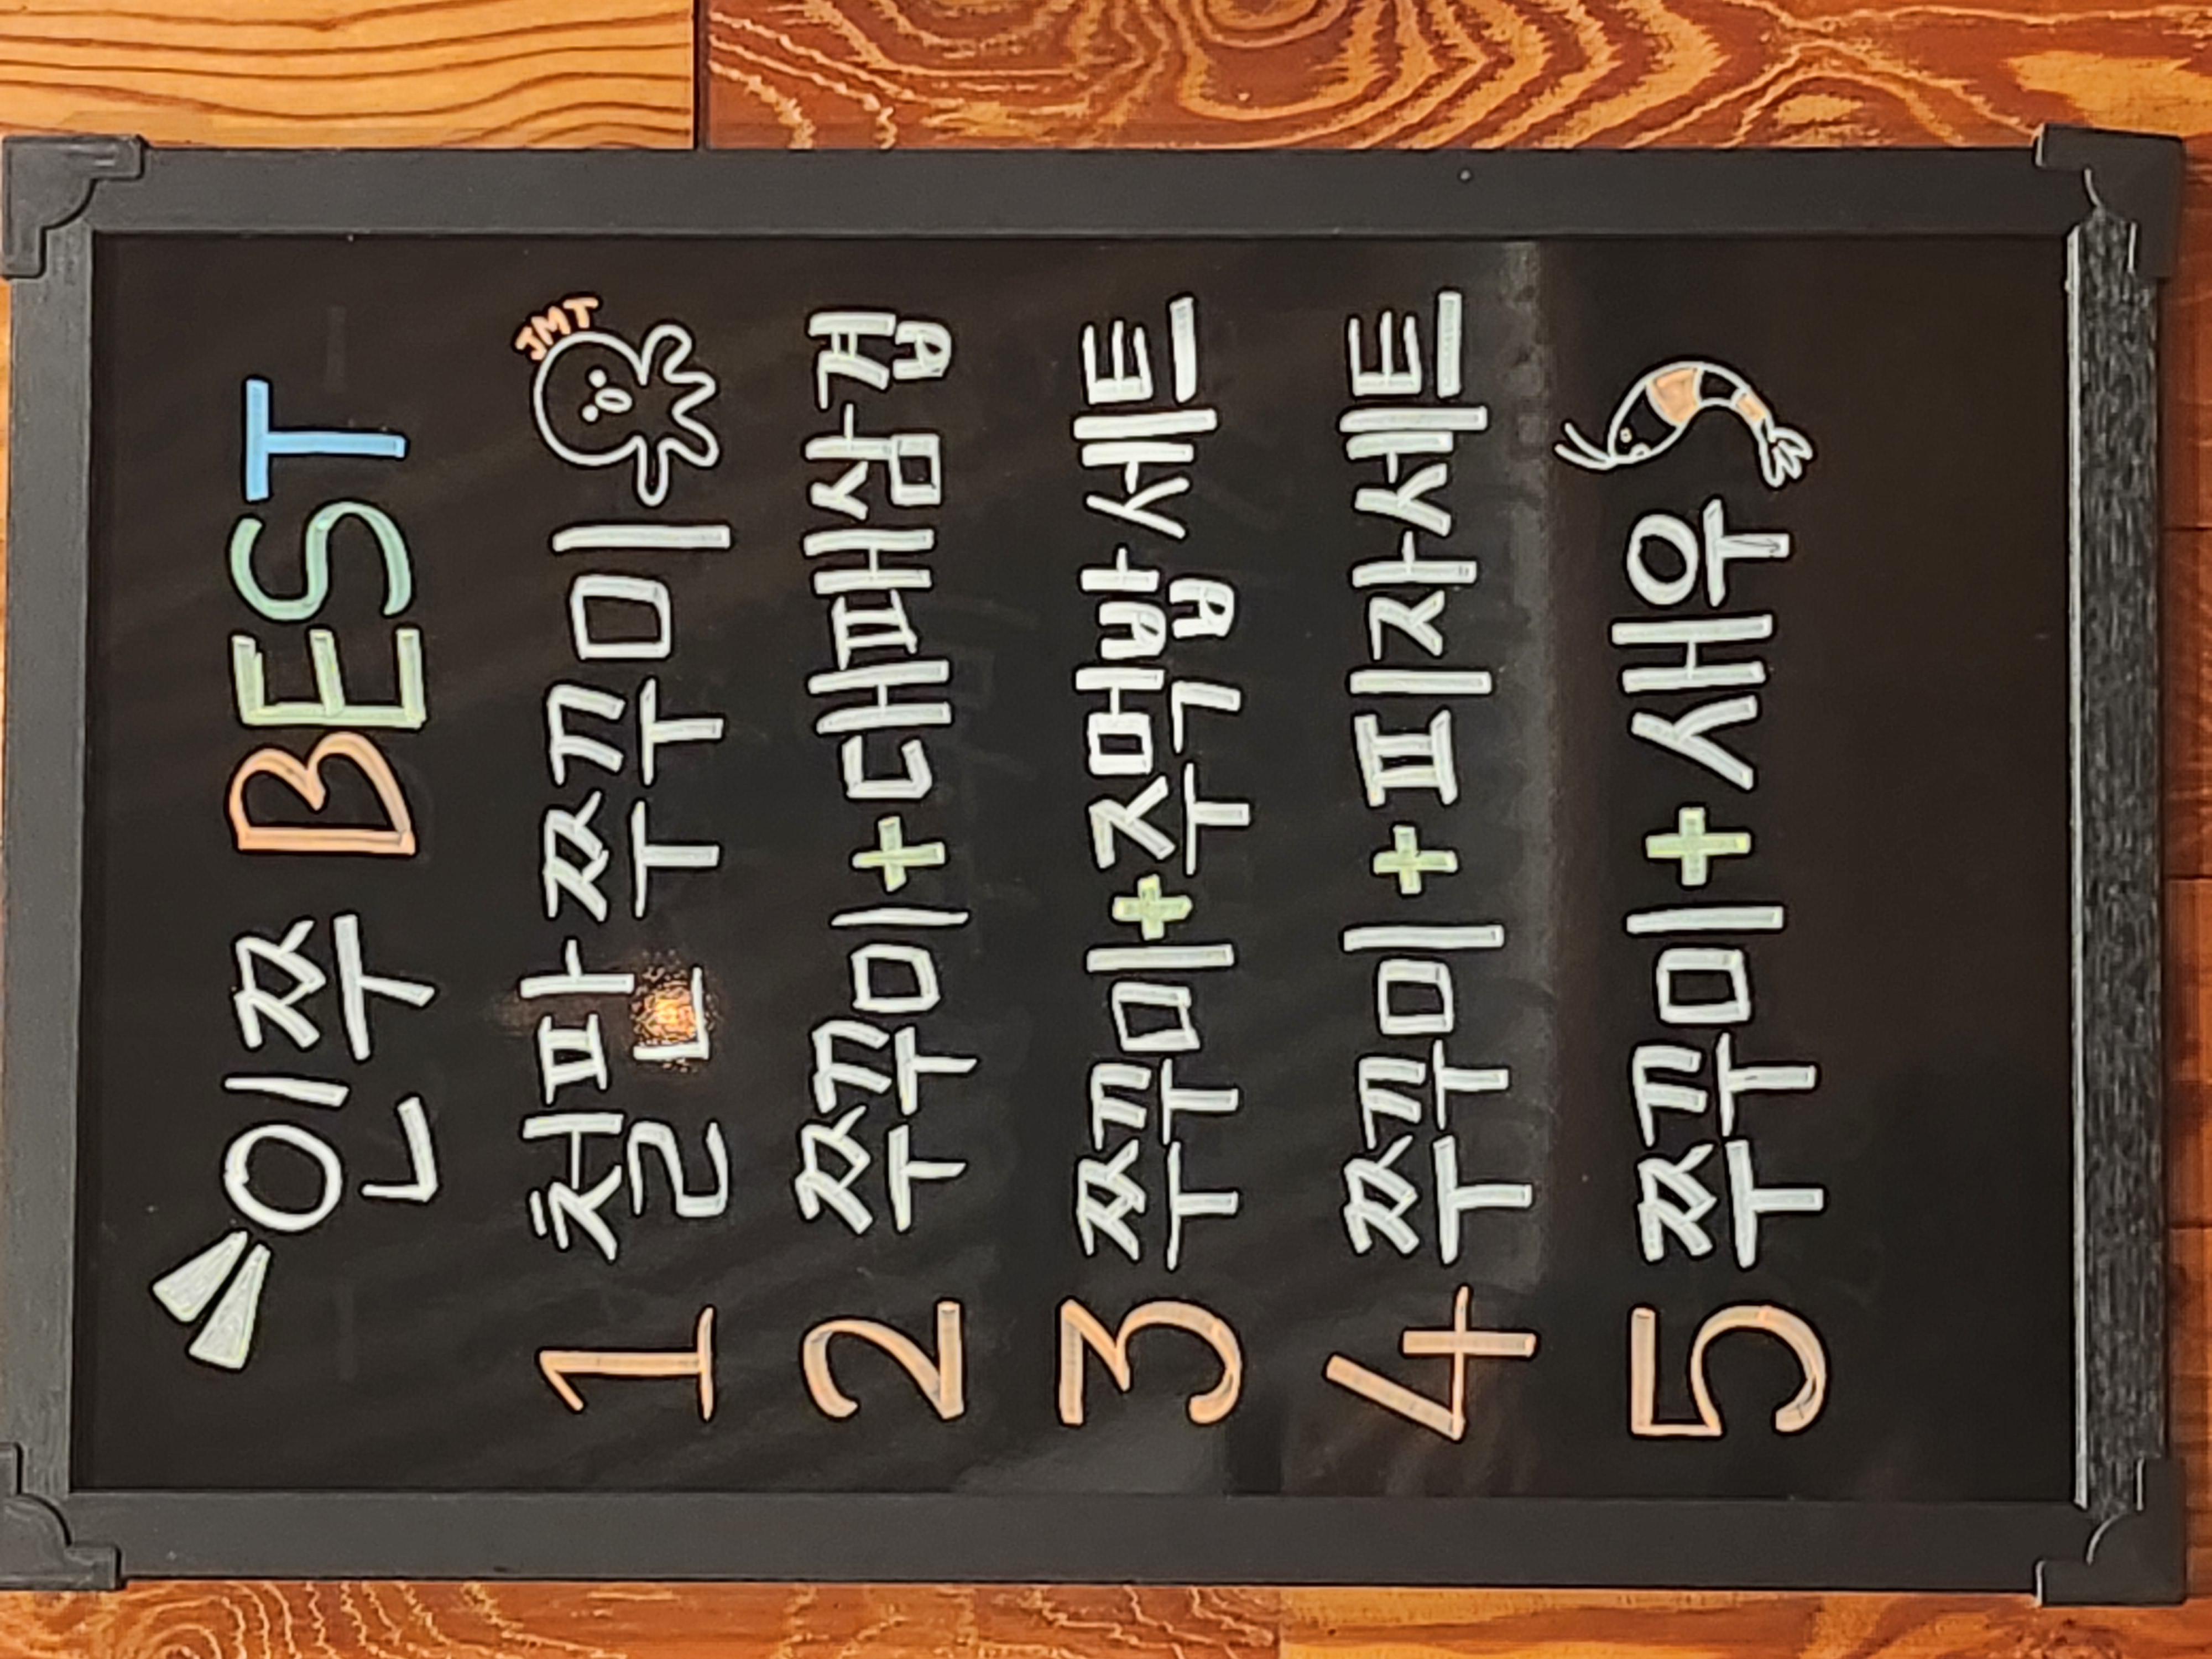 인쭈 BEST
1 철판쭈꾸미 JMT
2 쭈꾸미+대패삼겹
3 쭈꾸미+주먹밥세트
4 쭈꾸미+피자세트
5 쭈꾸미+새우